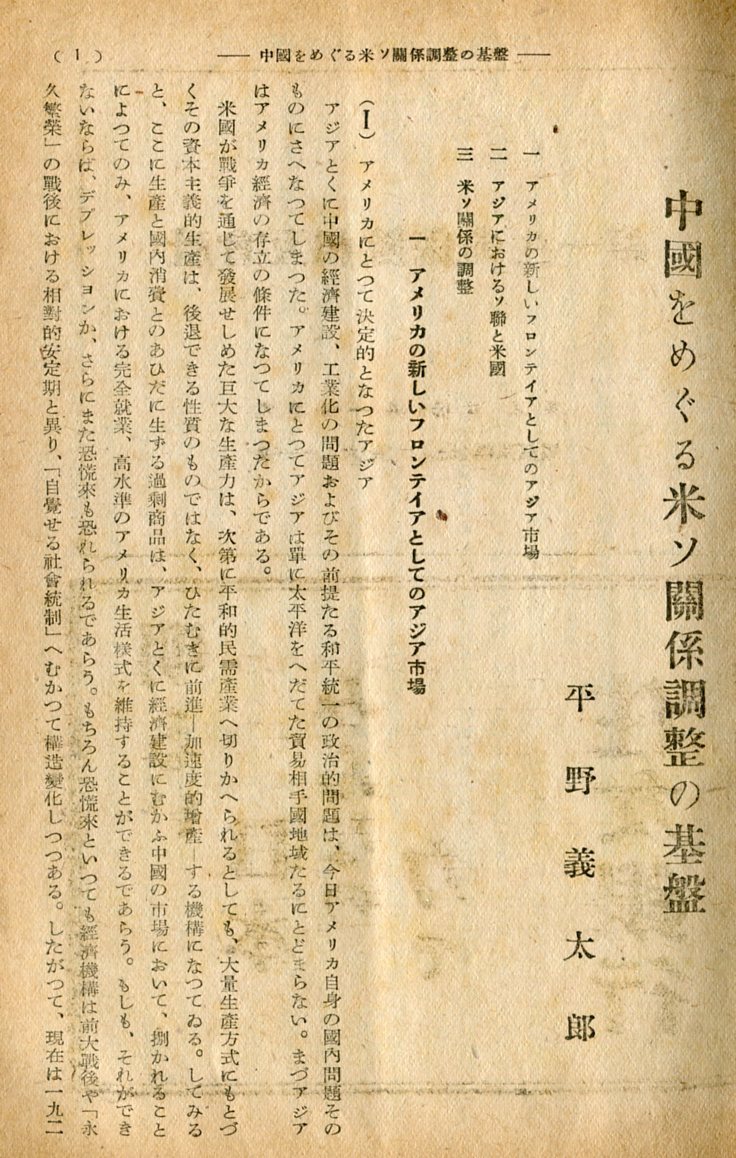 ( 1 )
― 中國をめぐる米ソ關係調整の基盤 ―
中國をめぐる米ソ關係調整の基盤
平野義太郎
一 アメリカの新しいフロンテイアとしてのアジア市場
二 アジアにおけるソ聯と米國
三 米ソ關係の調整
一 アメリカの新しいフロンテイアとしてのアジア市場
(I) アメリカにとつて決定的となつたアジア
アジアとくに中國の經濟建設、工業化の問題およびその前提たる和平統一の政治的問題は、今日アメリカ自身の國内問題その
ものにさへなつてしまつた。アメリカにとつてアジアは單に太平洋をへだてた貿易相手國地域たるにとどまらない。まづアジア
はアメリカ經濟の存立の條件になつてしまつたからである。
米國が戰爭を通じて發展せしめた巨大な生產力は、次第に平和的民需產業へ切りかへられるとしても、大量生產方式にもとづ
くその資本主義的生產は、後退できる性質のものではなく、ひたむきに前進―加速度的增產―する機構になつてゐる。してみる
と、ここに生產と國内消費とのあひだに生ずる過剩商品は、アジアとくに經濟建設にむかふ中國の市場において、捌かれること
によつてのみ、アメリカにおける完全就業、高水準のアメリカ生活樣式を維持することができるであらう。もしも、それができ
ないならば、デプレッションか、さらにまた恐慌來も恐れられるであらう。もちろん恐慌來といつても經濟機構は前大戰後や「永
久繁榮」の戰後における相對的安定期と異り、「自覺せる社會統制」へむかつて構造變化しつつある。したがつて、現在は一九二